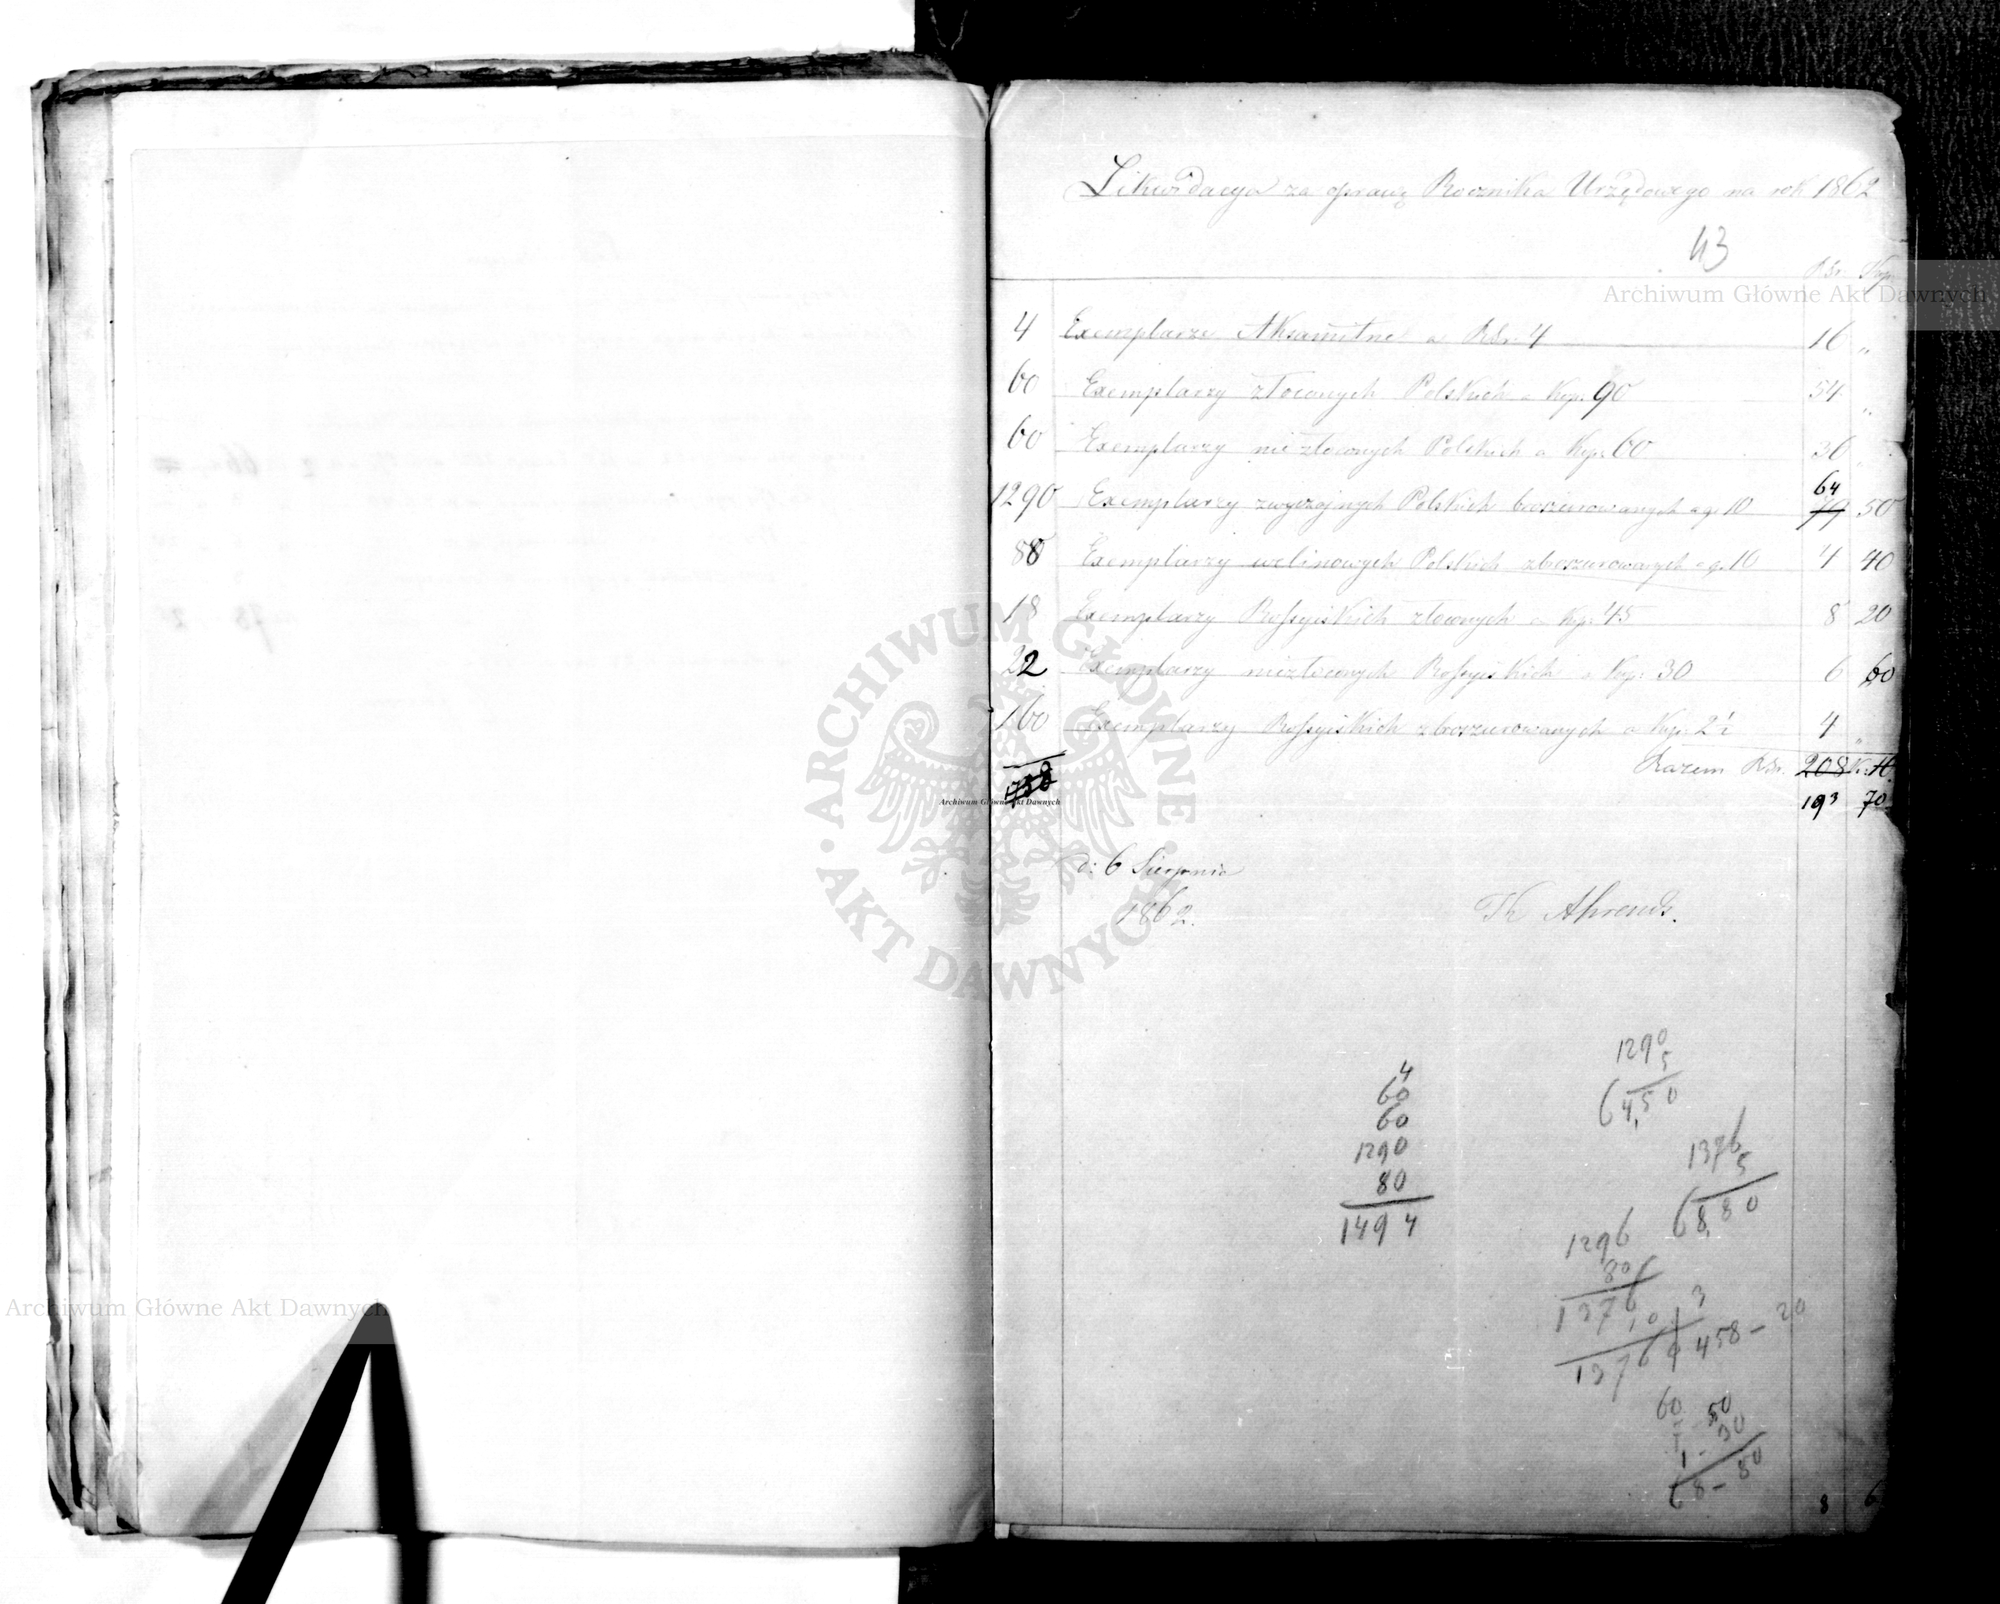 Likwidacya za oprawę Rocznika Urzędowego na rok 1862
43
RSr. Kop.
Archiwum Główne Akt Dawnych
4 Exemplarze Aksamitne a RSr. 4 16 „
60 Exemplarzy złoconych Polskich a Kop. 90 54 „
60 Exemplarzy niezłoconych Polskich a Kop. 60 36 „
64
1290 Exemplarzy zwyczajnych Polskich broszurowanych a g. 10 79 50
88 Exemplarzy welinowych Polskich zbroszurowanych a g. 10 4 40
18 Exemplarzy Rossyiskich złoconych a Kop. 45 8 20
22 Exemplarzy niezłoconych Rossyiskich a Kop. 30 6 60
160 Exemplarzy Rossyiskich zbroszurowanych a Kop. 2½ 4 „
Razem RSr. 208 K.
193 70
Archiwum Główne Akt Dawnych
ARCHIWUM GŁÓWNE
AKT DAWNYCH
d: 6 Sierpnia
1862.
Th Ahrends.
4
60
60
1290
80
1494
1290
5
64,50
1376
5
68,80
1296
80
1376
10 3
1376 458 – 20
60 50
1 – 30
68 – 80
8 6
Archiwum Główne Akt Dawnych